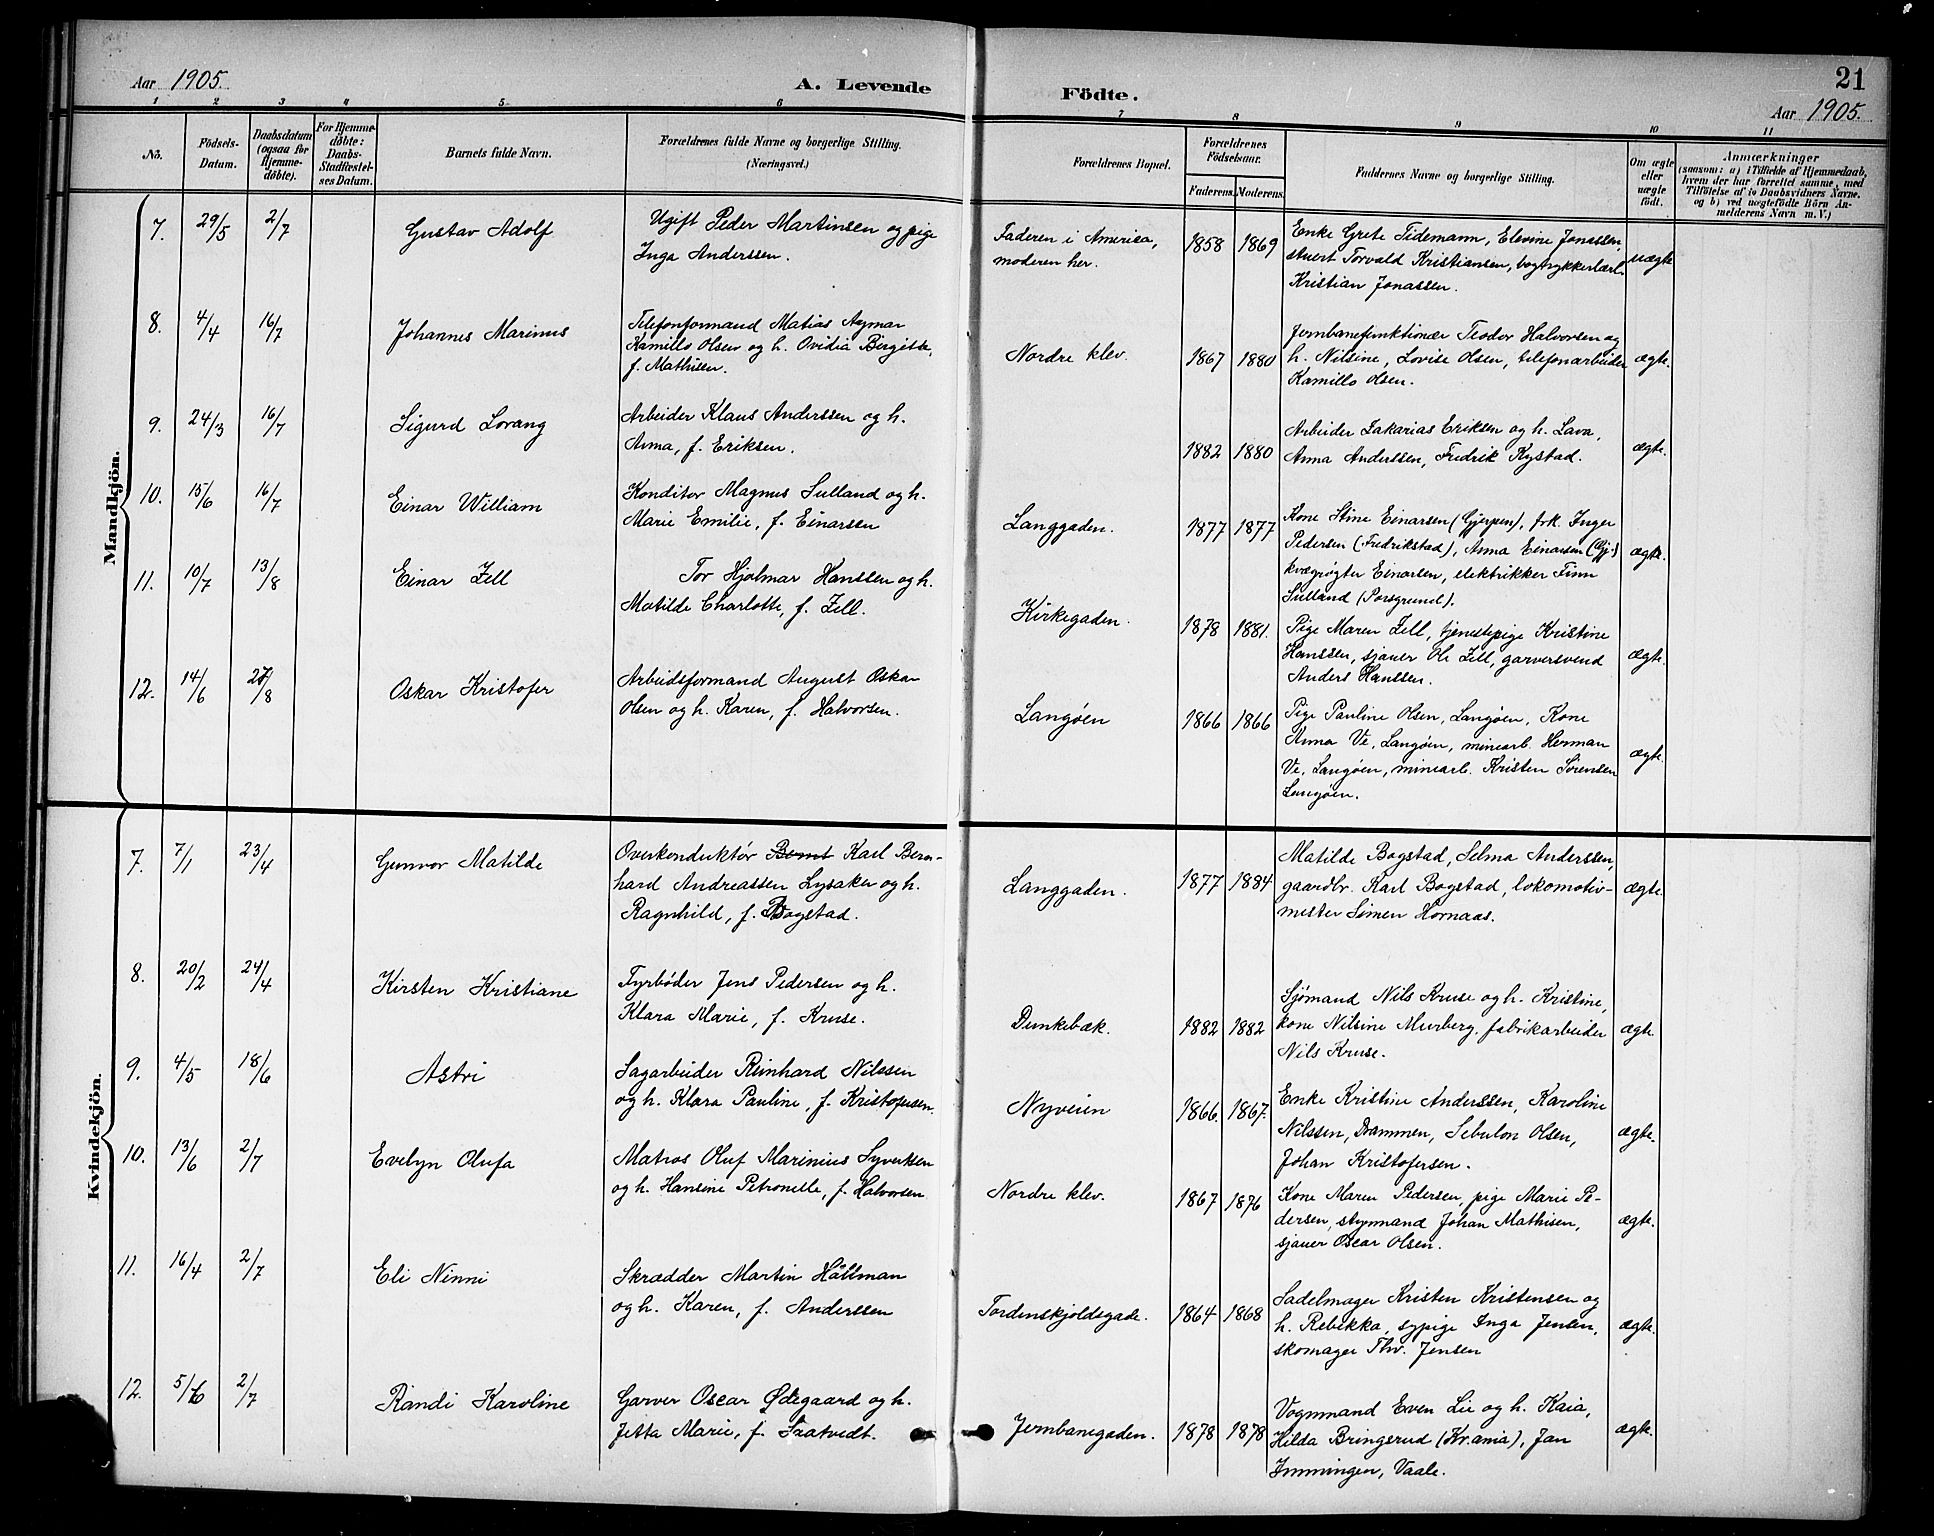 Aar 1905.
A. Levende Födte.
21
Aar 1905.
1 2 3 4 5 6 7 8 9 10 11
No.
Födsels-Datum.
Daabsdatum (ogsaa for Hjemmedøbte).
For Hjemmedøbte: Daabs-Stadfæstelses Datum.
Barnets fulde Navn.
Forældrenes fulde Navne og borgerlige Stilling.
(Næringsvei.)
Forældrenes Bopæl.
Forældrenes Födselsaar.
Faderens. Moderens.
Faddernes Navne og borgerlige Stilling.
Om ægte eller uægte födt.
Anmærkninger
(saasom: a) i Tilfælde af Hjemmedaab,
hvem der har forrettet samme, med
Tilföielse af to Daabsvidners Navne,
og b) ved uægtefödte Börn Anmelderens Navn m. V.)
Mandkjön.
7. 29/5 2/7 Gustav Adolf
Ugift Peder Martinsen og pige
Inga Anderssen.
Faderen i America,
moderen her.
1858 1869
Enke Grete Tidemann, Elevine Jonassen,
stuert Torvald Kristiansen, bogtrykkerlærl.
Kristian Jonassen.
uægte
8. 4/4 16/7 Johannes Marinus
Telefonformand Matias Aymar
Kamillo Olsen og h. Ovidia Birgitte,
f. Mathisen.
Nordre klev.
1867 1880
Jernbanefunktionær Teodor Halvorsen og
h. Nilsine, Lovise Olsen, telefonarbeider
Kamillo Olsen.
ægte.
9. 24/3 16/7 Sigurd Lorang
Arbeider Klaus Anderssen og h.
Anna, f. Eriksen.
1882 1880
Arbeider Zakarias Eriksen og h. Lava,
Anna Anderssen, Fredrik Kystad.
ægte.
10. 15/6 16/7 Einar William
Konditor Magnus Sulland og h.
Marie Emilie, f. Einarsen
Langgaden.
1877 1877
Kone Stine Einarsen (Gjerpen), frk. Inger
Pedersen (Fredrikstad), Anna Einarsen (Gj.)
kvægrøgter Einarsen, elektrikker Finn
Sulland (Porsgrund).
ægte.
11. 10/7 13/8 Einar Zell
Tor Hjalmar Hanssen og h.
Matilde Charlotte, f. Zell.
Kirkegaden.
1878 1881.
Pige Maren Zell, tjenestepige Kristine
Hanssen, sjauer Ole Zell, garversvend
Anders Hanssen.
ægte.
12. 14/6 27/8 Oskar Kristofer
Arbeidsformand August Oskar
Olsen og h. Karen, f. Halvorsen.
Langøen
1866 1866
Pige Pauline Olsen, Langøen, Kone
Anna Ve, Langøen, minearb. Herman
Ve, Langøen, minearb. Kristen Sørensen
Langøen.
ægte.
Kvindekjön.
7. 7/1 23/4 Gunvor Matilde
Overkonduktør Bernt Karl Bern-
hard Andreassen Lysaker og h.
Ragnhild, f. Bogstad.
Langgaden.
1877 1884
Matilde Bogstad, Selma Anderssen,
gaardbr. Karl Bogstad, lokomotiv-
mester Simen Hornaas.
ægte.
8. 20/2 24/4 Kirsten Kristiane
Fyrbøder Jens Pedersen og h.
Klara Marie, f. Kruse.
Dunkebæk.
1882 1882
Sjømand Nils Kruse og h. Kristine,
kone Nilsine Murberg, fabrikarbeider
Nils Kruse.
ægte.
9. 4/5 18/6 Astri
Sagarbeider Reinhard Nilssen
og h. Klara Pauline, f. Kristofersen.
Nyveien
1866. 1867.
Enke Kristine Anderssen, Karoline
Nilssen, Drammen, Sebulon Olsen,
Johan Kristofersen.
ægte.
10. 13/6 2/7 Evelyn Olufa
Matros Oluf Marinius Syvertsen
og h. Hansine Petronelle, f. Halvorsen
Nordre klev.
1867 1876
Kone Maren Pedersen, pige Marie Pe-
dersen, styrmand Johan Mathisen,
sjauer Oscar Olsen.
ægte.
11. 16/4 2/7 Eli Ninni
Skrædder Martin Hållman
og h. Karen, f. Anderssen
Tordenskjoldsgade.
1864 1868
Sadelmager Kristen Kristensen og
h. Rebekka, sypige Inga Jensen,
skomager Thv. Jensen
ægte.
12. 5/6 2/7 Randi Karoline
Garver Oscar Ødegaard og h.
Jetta Marie, f. Tratvedt.
Jernbanegaden.
1878 1878
Vognmand Even Lie og h. Kaia,
Hilda Bringsrud (Kr.ania), Jan
Immingen, Vaale.
ægte.